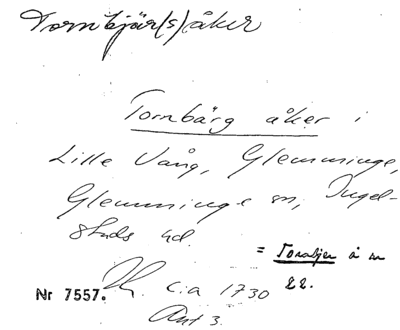 Tornbjär(s)åker
Tornbärg åker i
Lille Vång, Glemminge,
Glemminge sn, Ingel-
stads hd.
= Tornbjer å n
22.
Nr 7557. c:a 1730
Akt 3.